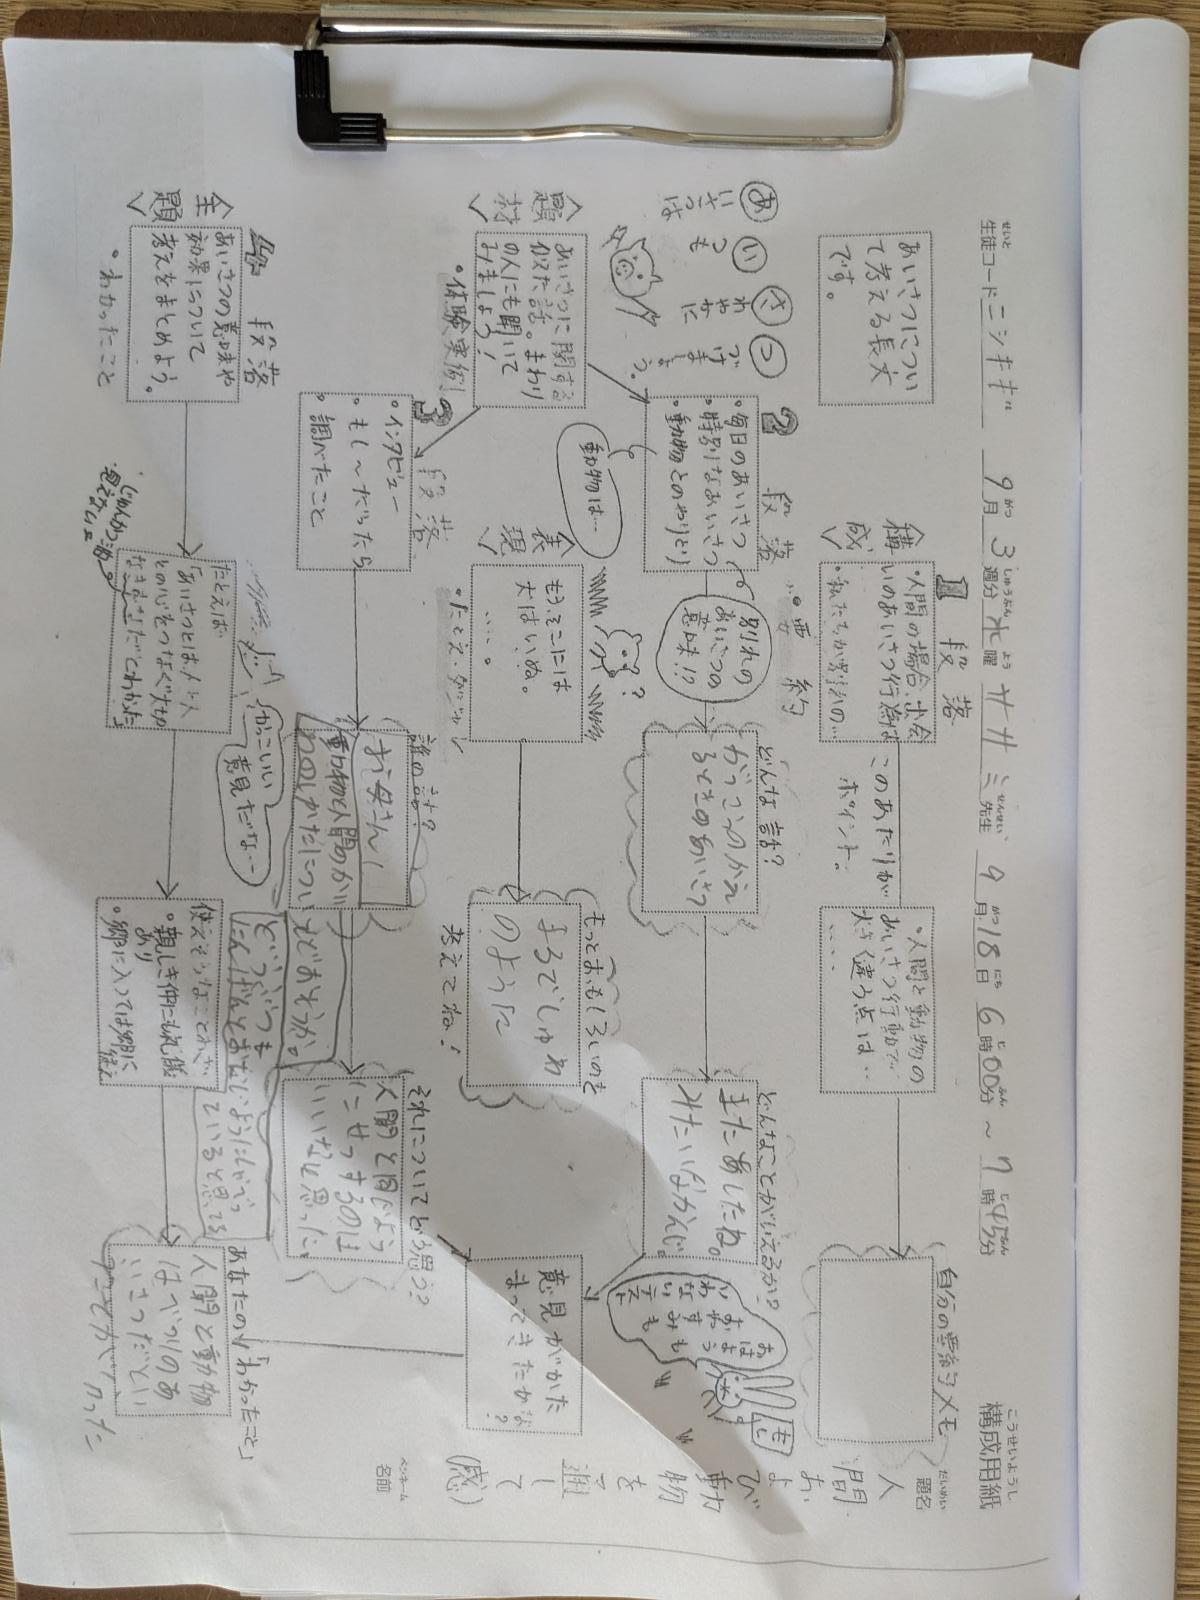 構成用紙
こうせいようし
せいと
生徒コード ニシキギ 9月 3週分 水曜 サササミ先生 9月18日 6時00分 ～ 7時45分
だいめい
題名
人間および動物を通して(感)
ペンネーム
名前
あいさつについ
て考える長文
です。
あいさつは
いつも
さわやかに
つづけましょう。
＜構成＞
1段落
・人間の場合、出会
いのあいさつ行為は
・私たちが別れの…
このあたりが
ポイント。
・人間と動物の
あいさつ行動で
大きく違う点は…
自分の要約メモ
・要約
2段落
・毎日のあいさつ
・特別なあいさつ
・動物とのやりとり
動物は…
別れの
あいさつの
意味!?
どんな話?
がっこうのかえ
るときのあいさつ
どんなことがいえるか?
またあしたね。
みたいなかんじ。
おはよう
おやすみも
わすれない
＜題材＞
あいさつに関する
似た話。まわり
の人にも聞いて
みましょう!
・体験実例
＜表現＞
もう、そこには
犬はいぬ。
…。
・たとえ・ダジャレ
もっとおもしろいのを
まるでしゅわ
のように
考えてね!
意見がかた
まってきたかな?
3段落
・インタビュー
・もし〜だったら
・調べたこと
誰の話?
お母さん/
動物と人間のかい
わのしかたについ
てどおもうか。
どうぶつも
にんげんとおなじようにしゃべっ
ていると思ってる
それについてどう思う?
人間と同じよう
にせっするのは
いいなと思った。
4段落
＜主題＞
あいさつの意味や
効果について
考えをまとめよう。
・わかったこと
たとえば
「あいさつとは人と人
との心をつなぐ大切
かっこいい
意見だな…
使えそうなことわざ
・親しき仲にも礼儀
あり
・郷に入っては郷に
従え
あなたの「わかったこと」
人間と動物
はべつのあ
いさつだとい
うことがわかった